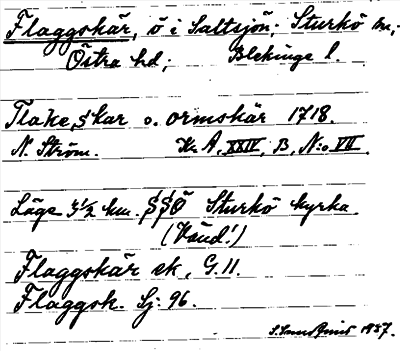 Flaggskär, ö i Saltsjön; Sturkö sn;
Östra hd; Blekinge l.
Flake,skar o. ormskär 1718.
N. Ström. K. A, XXIV, B, N:o VII.
Läge 3½ km. SSÖ Sturkö kyrka.
(Känd!)
Flaggskär ek, G.11.
Flaggsk. Sj. 96.
1957.